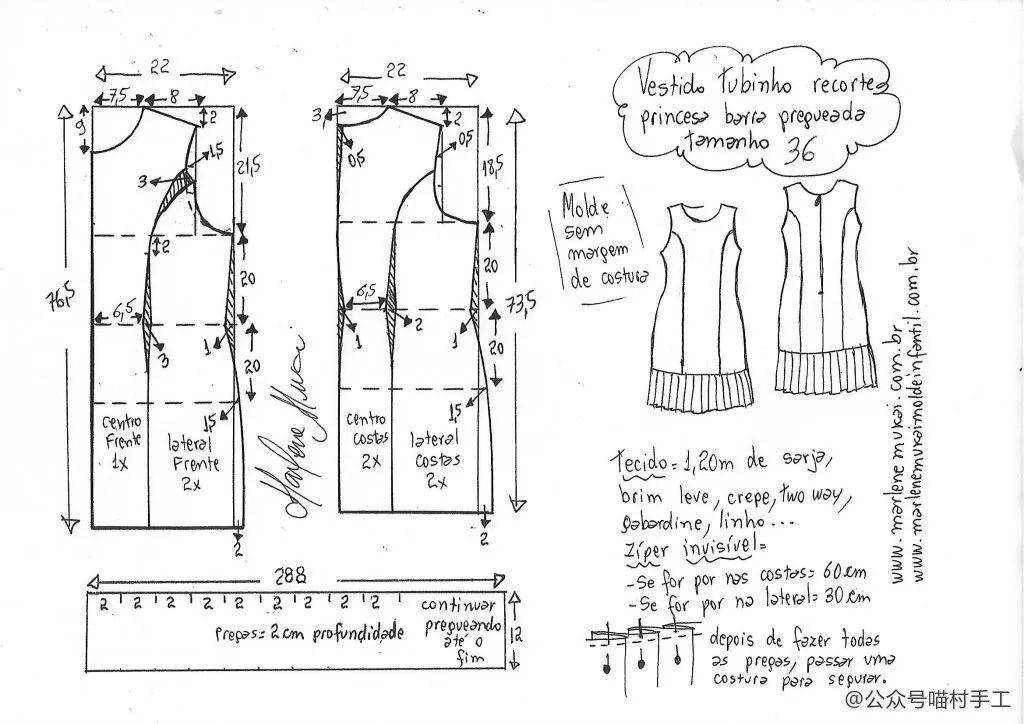 22
7,5
8
2
9
1,5
3
21,5
2
20
6,5
76,5
3
1
20
1,5
centro
Frente
1x
lateral
Frente
2x
2
22
7,5
8
3
2
0,5
0,5
18,5
20
6,5
73,5
1
2
1
20
1,5
centro
costas
2x
lateral
costas
2x
2
Marlene Mukai
288
2 2 2 2 2 2 2 2
continuar
pregueando
até o
fim
pregas= 2 cm profundidade
12
Vestido tubinho recortes
princesa barra pregueada
tamanho 36
Molde
sem
margem
de costura
www.marlenemukai.com.br
www.marlenemukaimoldeinfantil.com.br
Tecido= 1,20m de sarja,
brim leve, crepe, two way,
gabardine, linho...
Zíper invisível=
-Se for por nas costas= 60cm
-Se for por na lateral= 30cm
depois de fazer todas
as pregas, passar uma
costura para segurar.
@公众号喵村手工